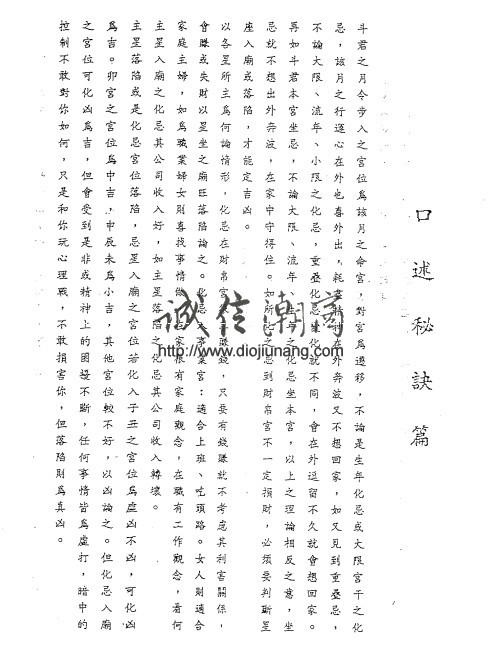 口述秘訣篇
斗君之月令步入之宮位為該月之命宮，對宮為遷移，不論是生年化忌或大限宮干之化
忌，該月之行運心在外也喜外出，耗盡精神在外奔波又不想回家，如又見到重疊忌，
不論大限、流年、小限之化忌，重疊化忌變化就不同，會在外逗留不久就會想回家。
再如斗君本宮坐忌，不論大限、流年、生年之化忌坐本宮，以上之理論相反之意，坐
忌就不想出外奔波，在家中守得住。如所化之忌到財帛宮不一定損財，必須要判斷星
座入廟或落陷，才能定吉凶。
以各星所主為何論情形，化忌在財帛宮賺錢，只要有錢賺就不考慮其利害關係，
會賺或失財以星坐之廟旺落陷論之。化忌入事業宮：適合上班、吃頭路。女人則適合
家庭主婦，如為職業婦女則喜找事情做，在家很有家庭觀念，在職有工作觀念，看何
主星入廟之化忌其公司收入好，如主星落陷之化忌其公司收入轉壞。
主星落陷或是化忌宮位落陷，忌星入廟之宮位若化入子丑之宮位為虛凶不凶，可化凶
為吉。卯宮之宮位為中吉，申辰未為小吉，其他宮位較不好，以凶論之。但化忌入廟
之宮位可化凶為吉，但會受到是非或精神上的困擾不斷，任何事情皆為虛打，暗中的
控制不敢對你如何，只是和你玩心理戰，不敢損害你，但落陷則為真凶。
誠信潮
http://www.diojiunang.com